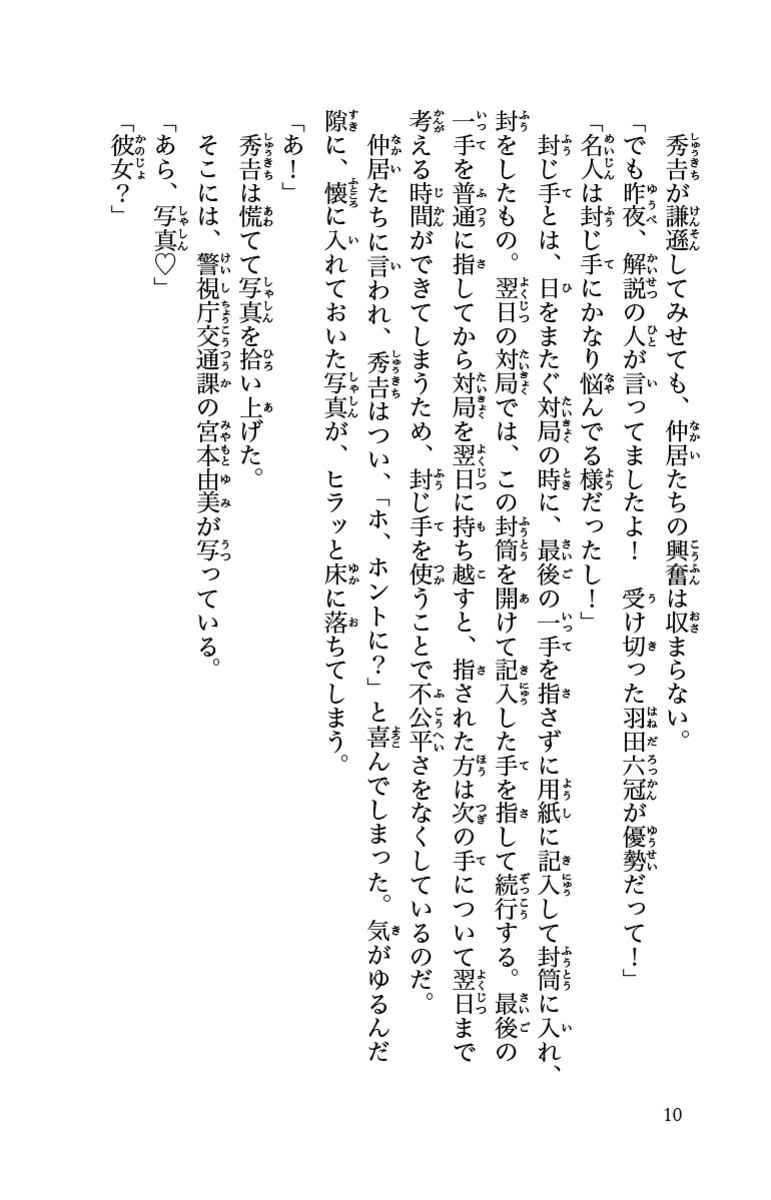 秀𠮷が謙遜してみせても、仲居たちの興奮は収まらない。
「でも昨夜、解説の人が言ってましたよ！　受け切った羽田六冠が優勢だって！」
「名人は封じ手にかなり悩んでる様だったし！」
封じ手とは、日をまたぐ対局の時に、最後の一手を指さずに用紙に記入して封筒に入れ、
封をしたもの。翌日の対局では、この封筒を開けて記入した手を指して続行する。最後の
一手を普通に指してから対局を翌日に持ち越すと、指された方は次の手について翌日まで
考える時間ができてしまうため、封じ手を使うことで不公平さをなくしているのだ。
仲居たちに言われ、秀𠮷はつい、「ホ、ホントに？」と喜んでしまった。気がゆるんだ
隙に、懐に入れておいた写真が、ヒラッと床に落ちてしまう。
「あ！」
秀𠮷は慌てて写真を拾い上げた。
そこには、警視庁交通課の宮本由美が写っている。
「あら、写真♡」
「彼女？」
10